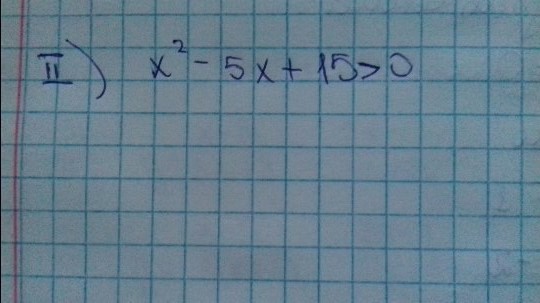 II) x² - 5x + 15 > 0